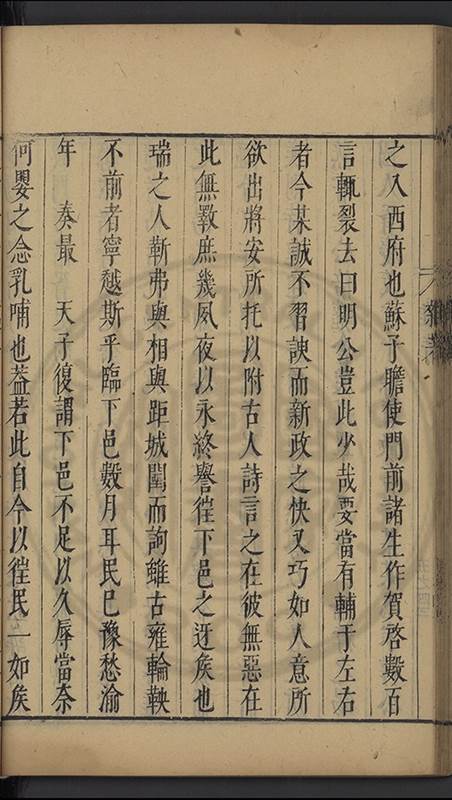 之入西府也蘇子瞻使門前諸生作賀啓數百
言輒裂去曰明公豈此少哉要當有輔于左右
者今某誠不習諛而新政之快又巧如人意所
欲出將安所托以附古人詩言之在彼無惡在
此無斁庶幾夙夜以永終譽徃下邑之迓矦也
瑞之人靳弗與相與距城闉而詢雖古雍輪鞅
不前者寧越斯乎臨下邑數月耳民已豫愁渝
年 奏最 天子復謂下邑不足以久辱當奈
何嬰之念乳哺也葢若此自今以徃民一如矦